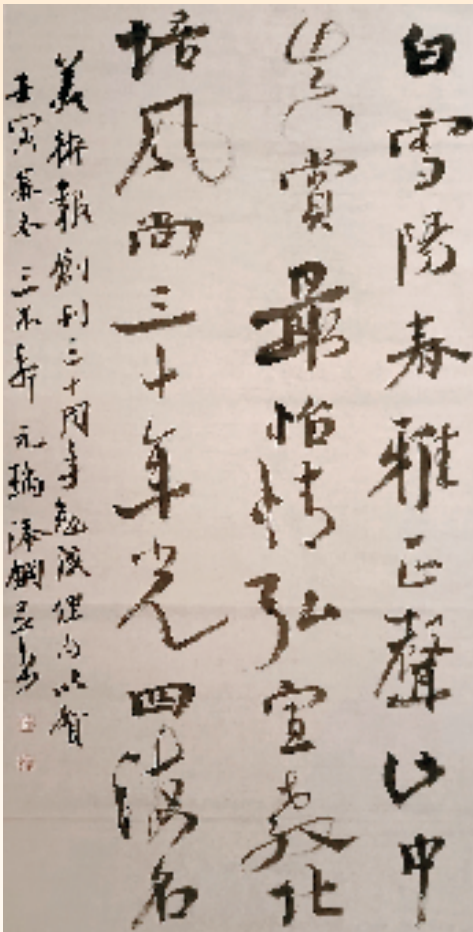 白雪陽春雅正聲此中
真賞最怡情弘宣教化
培風尚三十年光四海名
美術報創刊三十周年勉成俚句以賀
壬寅暮冬三不齋元瑞